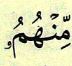 مِّنْهُمُۥ